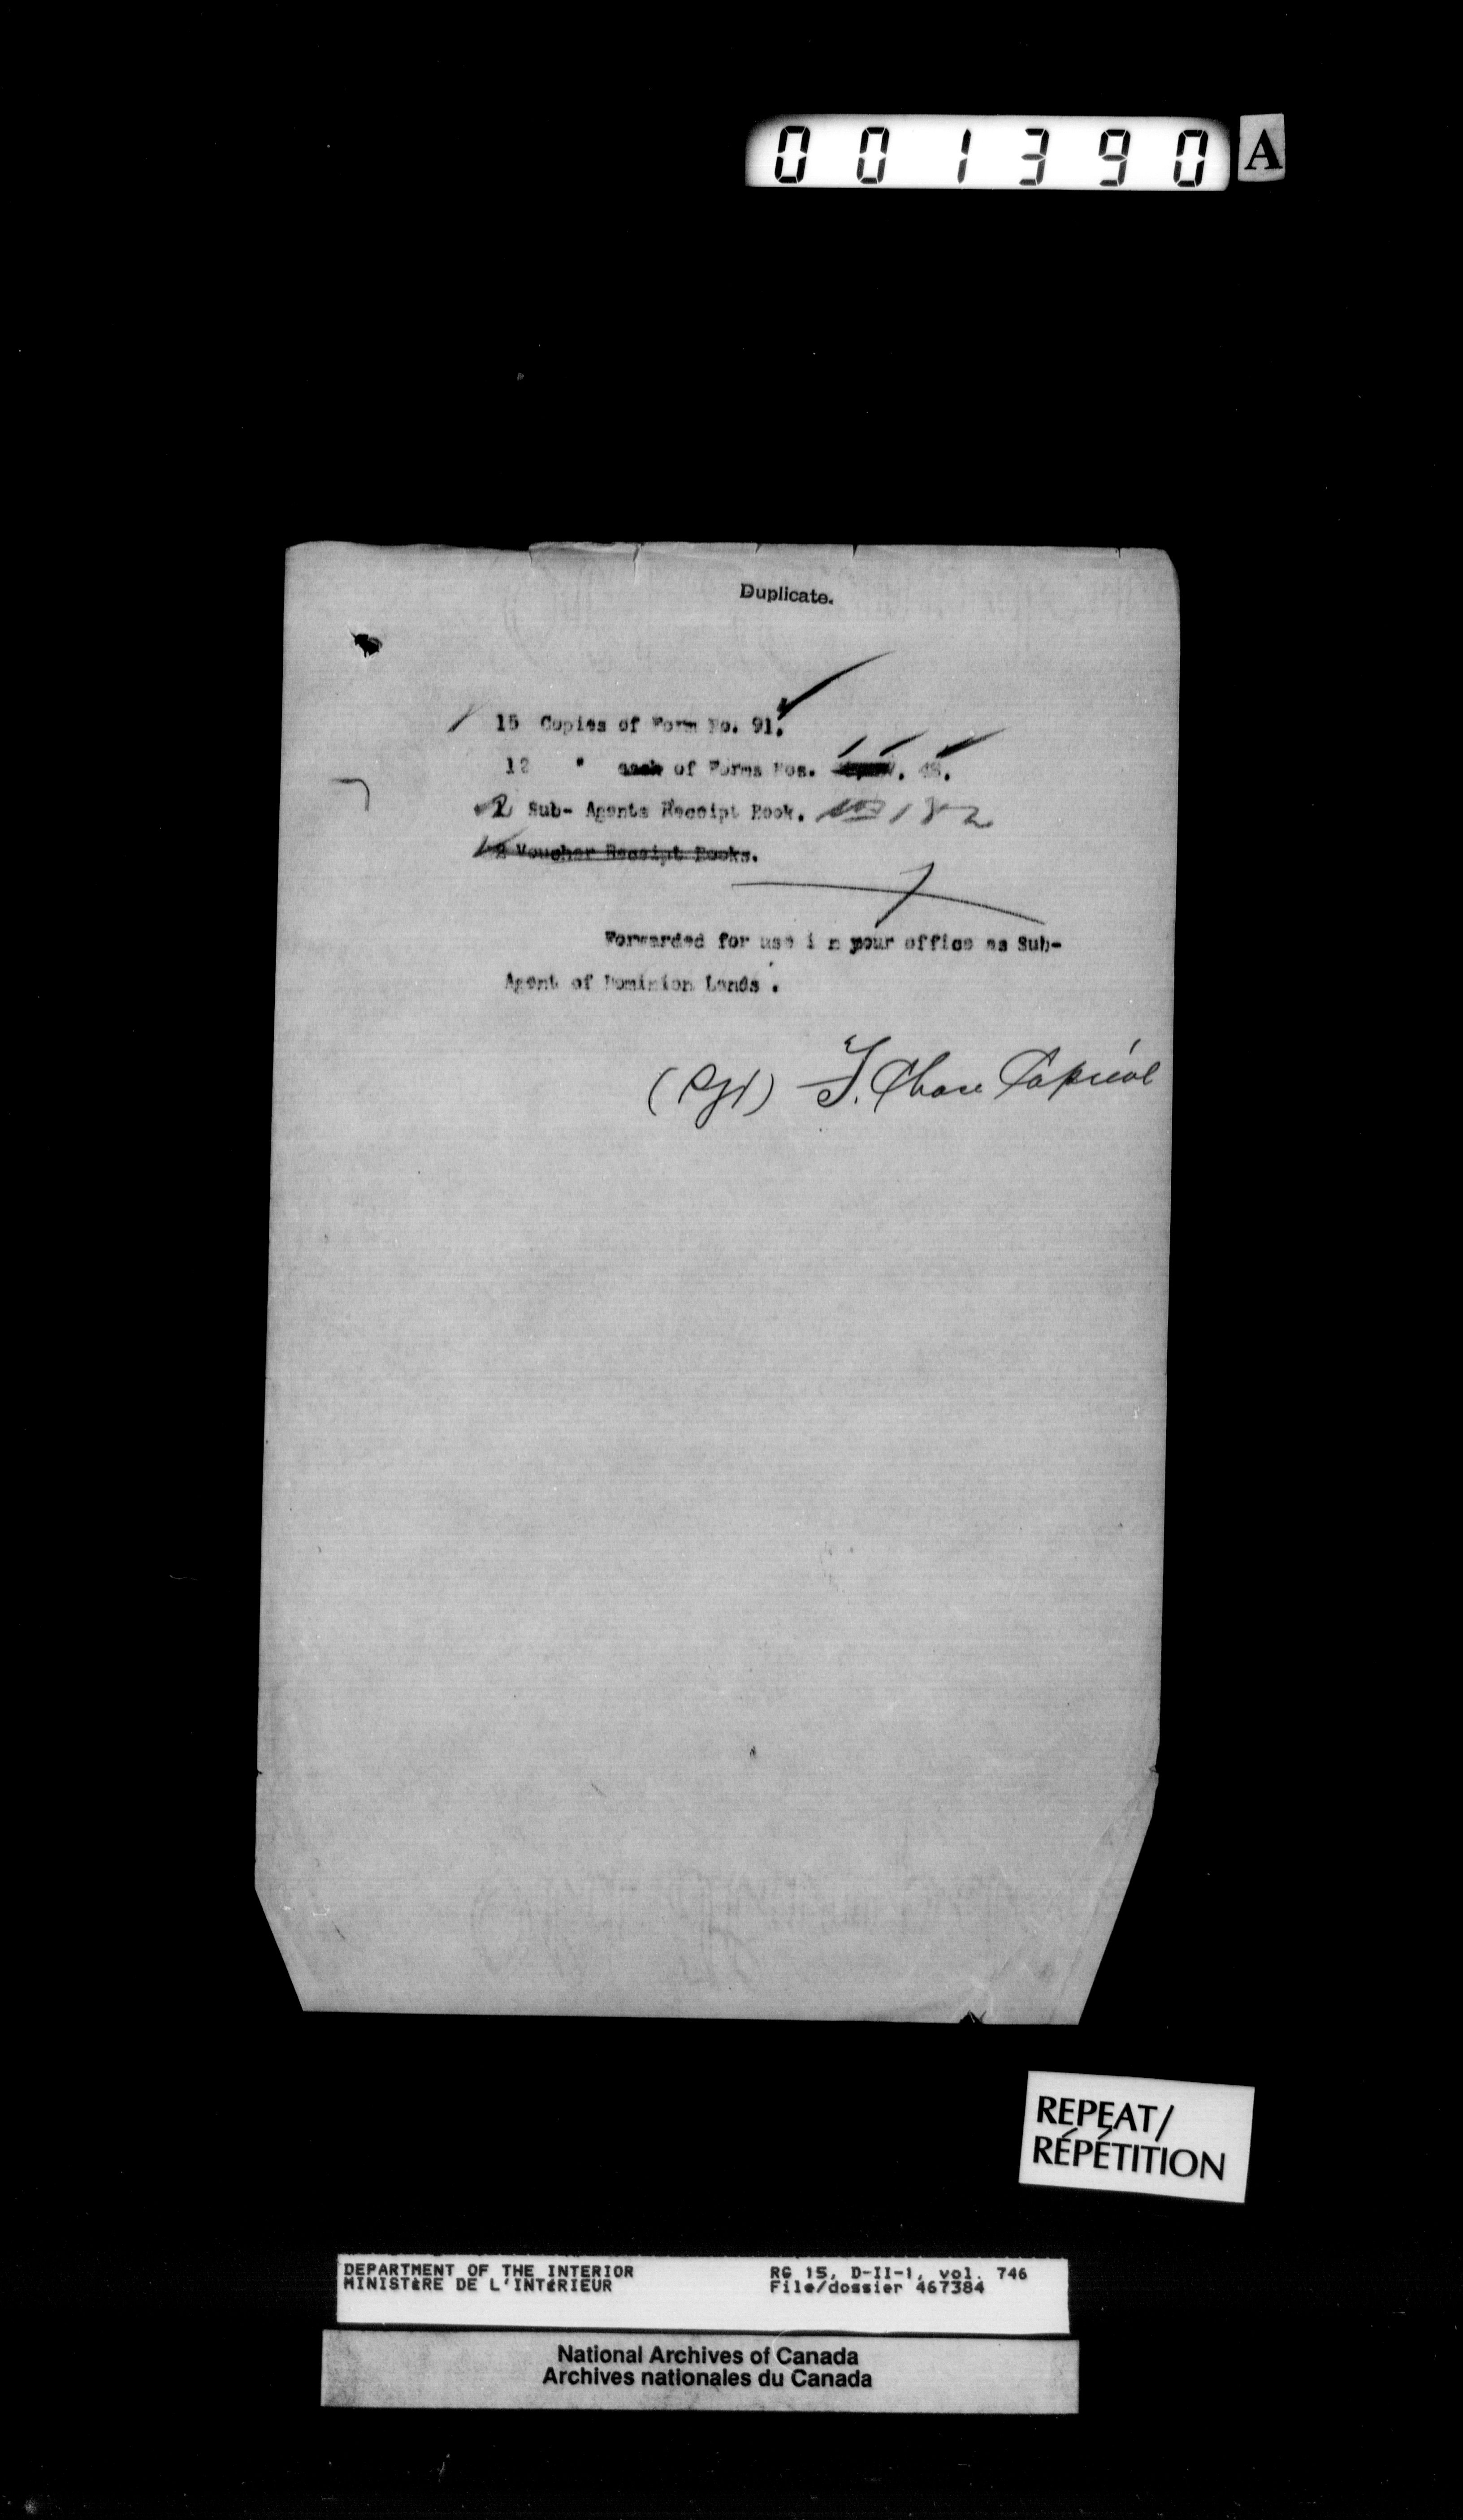 001390 A
Duplicate.
15 Copies of Form No. 91.
12 " each of Forms Nos. 48.
1 Sub- Agents Receipt Book. No 182
2 Voucher Receipt Books.
Forwarded for use i n your office as Sub-
Agent of Dominion Lands .
(Sgd) F. Chase Capreol
REPEAT/
RÉPÉTITION
DEPARTMENT OF THE INTERIOR RG 15, D-II-1, vol. 746
MINISTÈRE DE L'INTÉRIEUR File/dossier 467384
National Archives of Canada
Archives nationales du Canada